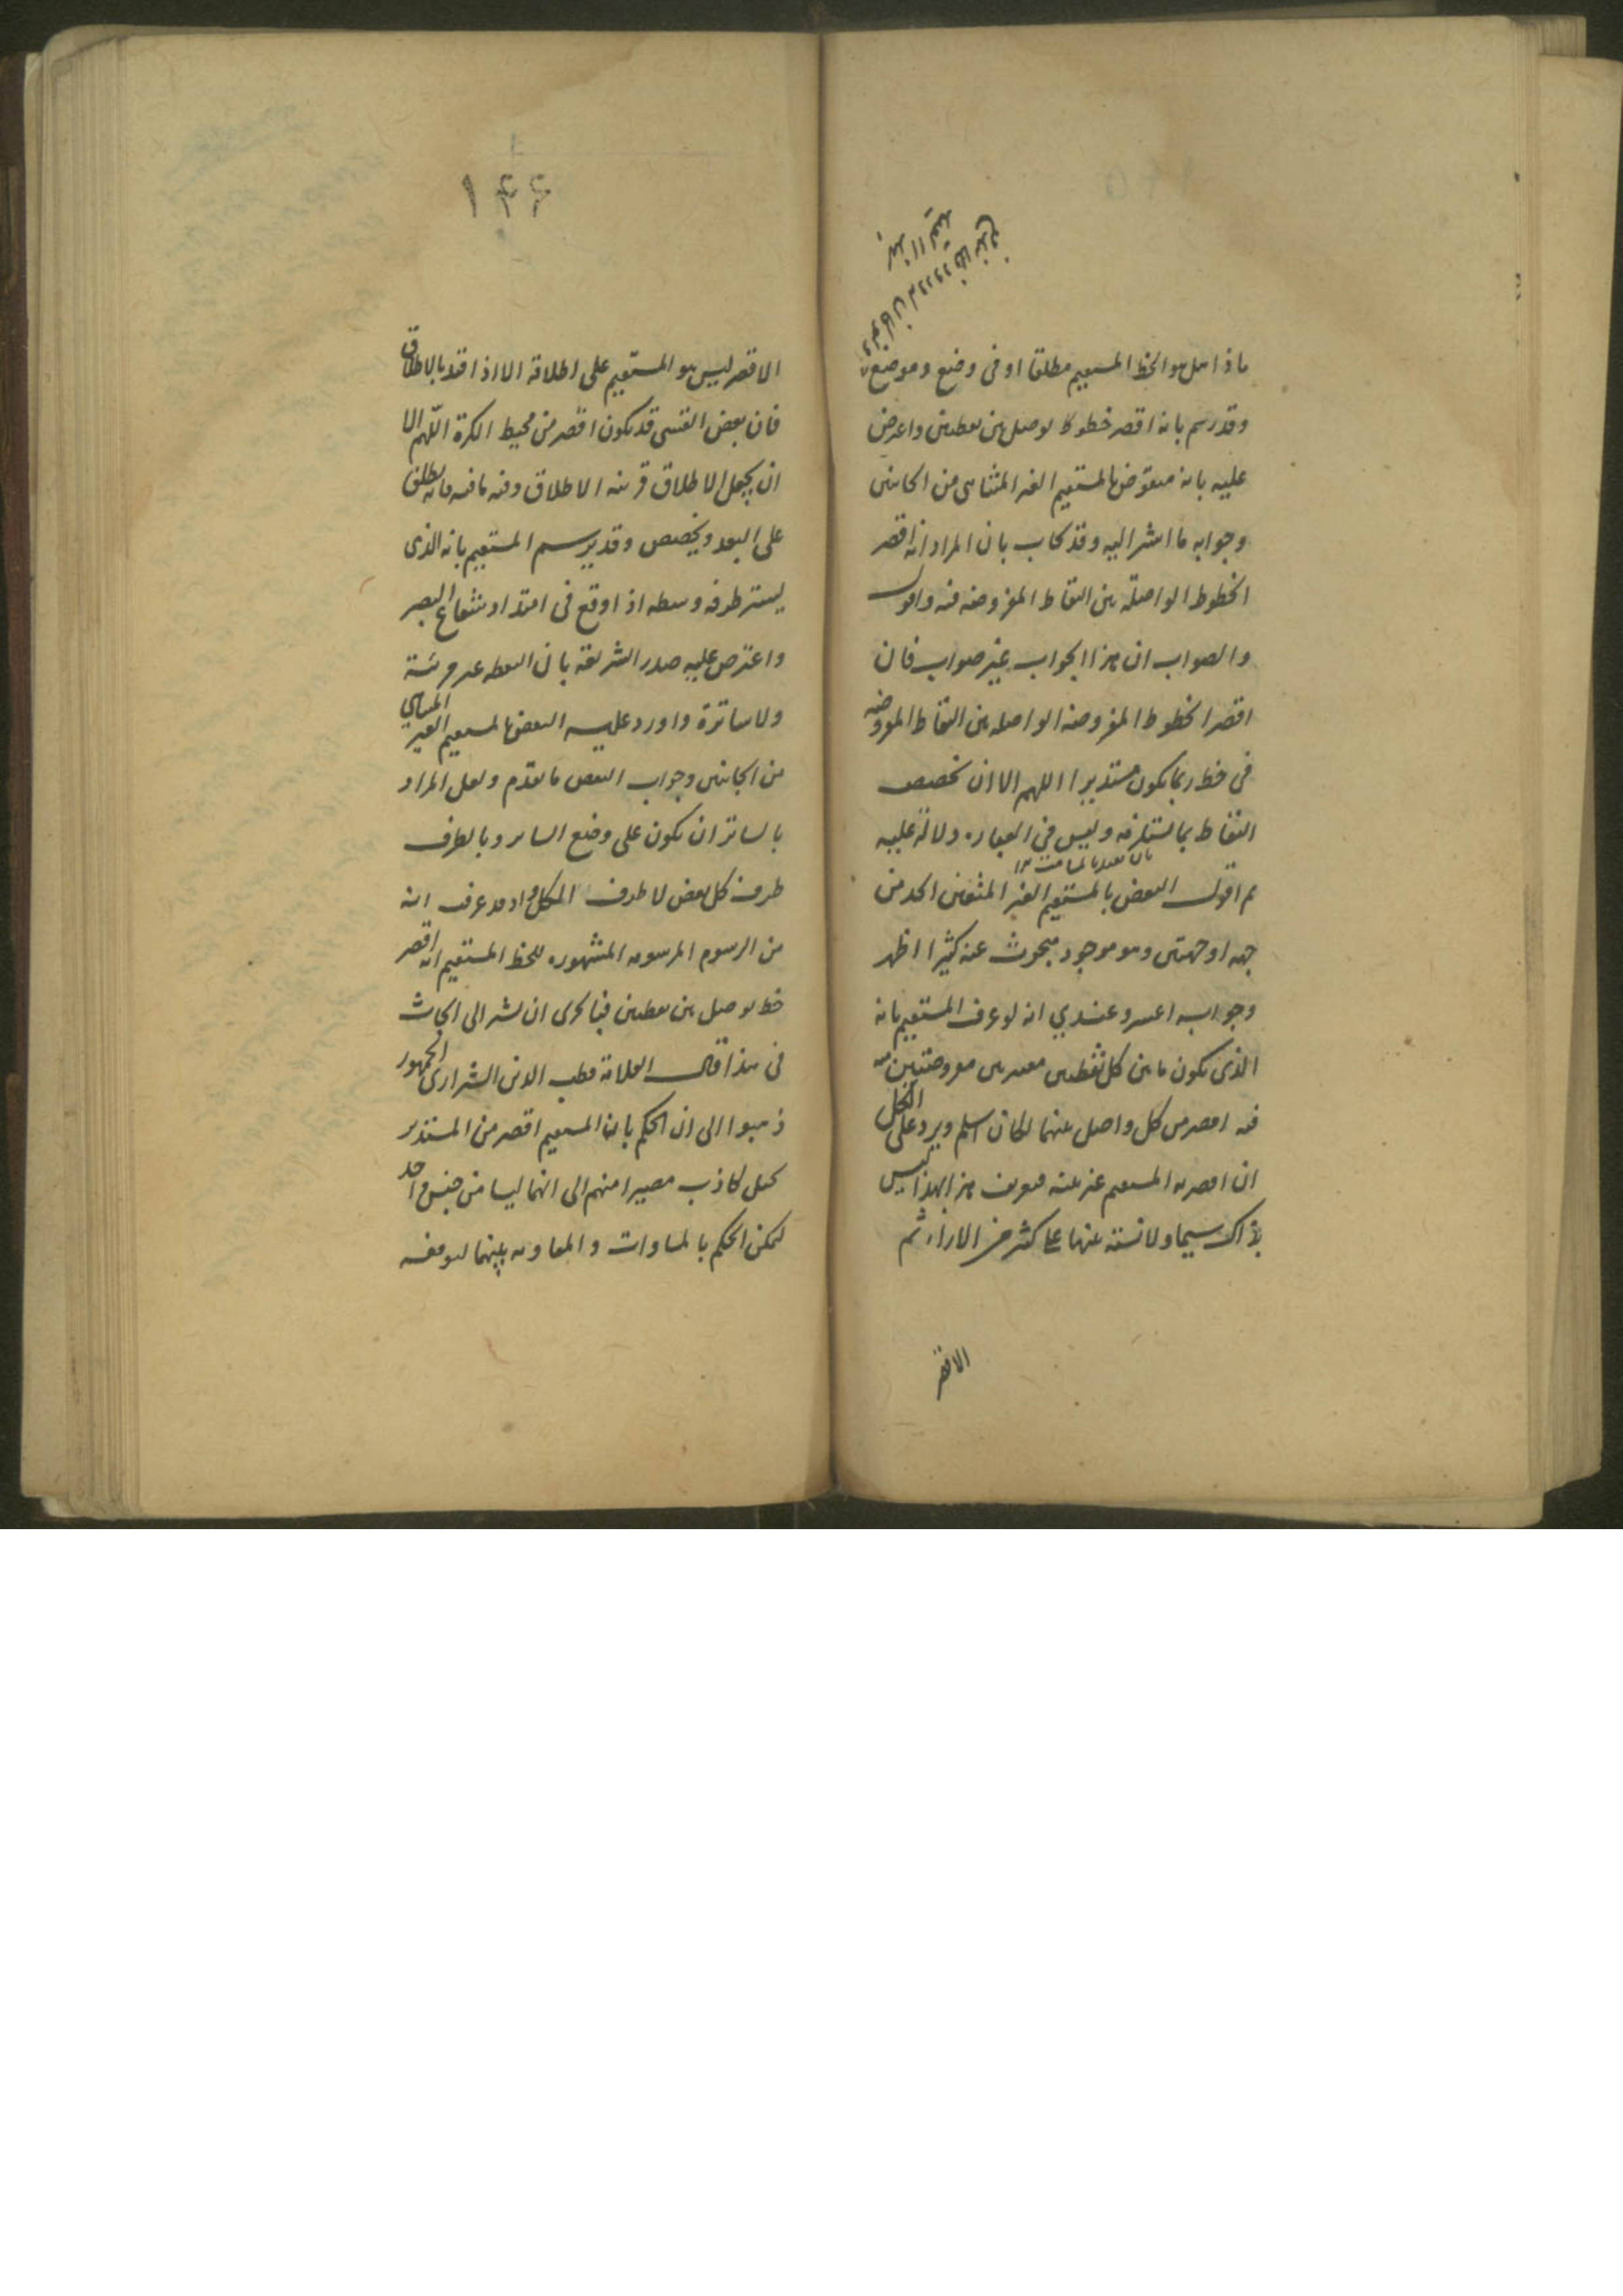 ماذا هل هو الخط المستقيم مطلقا او فى وضع وموضع
وقد رسم بانه اقصر خطوط يوصل بين نقطتين واعترض
عليه بانه منقوض بالمستقيم الغير المتناهى من الجانبين
وجوابه ما اشير اليه وقد يجاب بان المراد انه اقصر
الخطوط الواصلة بين النقاط المفروضه فيه واقول
والصواب ان هذا الجواب غير صواب فان
اقصر الخطوط المفروضه الواصله بين النقاط المفروضه
فى خط ربما يكون مستديرا اللهم الا ان يخصص
النقاط بما يستلزمه وليس فى العباره دلالة عليه
ثم اقول النقض بالمستقيم الغير المتعين الحد من
جهه او جهتين وهو موجود مبحوث عنه كثيرا اظهر
وجوابه اعسر وعندي انه لو عرف المستقيم بانه
الذى يكون ما بين كل نقطتين مفروضتين
فيه اقصر من كل واصل بينهما لكان اسلم ويرد على الكل
ان اقصريه المستقيم غير بينه فتعريف هذا بهذا ليس
بذاك سيما ولا نسبته بينهما على كثير من الاراء ثم
الاقصر
١٤٦
الاقصر ليس هو المستقيم على اطلاقه الا اذا قيد بالاطلاق
فان بعض القسى قد يكون اقصر من محيط الكرة اللّهم الا
ان يجعل الاطلاق قرينه الاطلاق وفيه ما فيه فانه يطلق
على البعد ويخصص وقد يرسم المستقيم بانه الذى
يستر طرفه وسطه اذا وقع فى امتداد شعاع البصر
واعترض عليه صدر الشريعه بان النقطه غير مرئية
ولا ساترة واورد عليه النقض بالمستقيم الغير المتناهي
من الجانبين وجواب النقض ما تقدم ولعل المراد
بالساتر ان يكون على وضع الساتر وبالطرف
طرف كل بعض لا طرف الكل واذ قد عرفت انه
من الرسوم المرسومه المشهوره للخط المستقيم انه اقصر
خط يوصل بين نقطتين فبالحرى ان نشير الى ابحاث
فى هذا قال العلامة قطب الدين الشيرازى الجمهور
ذهبوا الى ان الحكم بان المستقيم اقصر من المستدير
تخيل كاذب مصيرا منهم الى انهما ليسا من جنس واحد
ليمكن الحكم بالمساوات والمفاوته بينهما لتوقفه